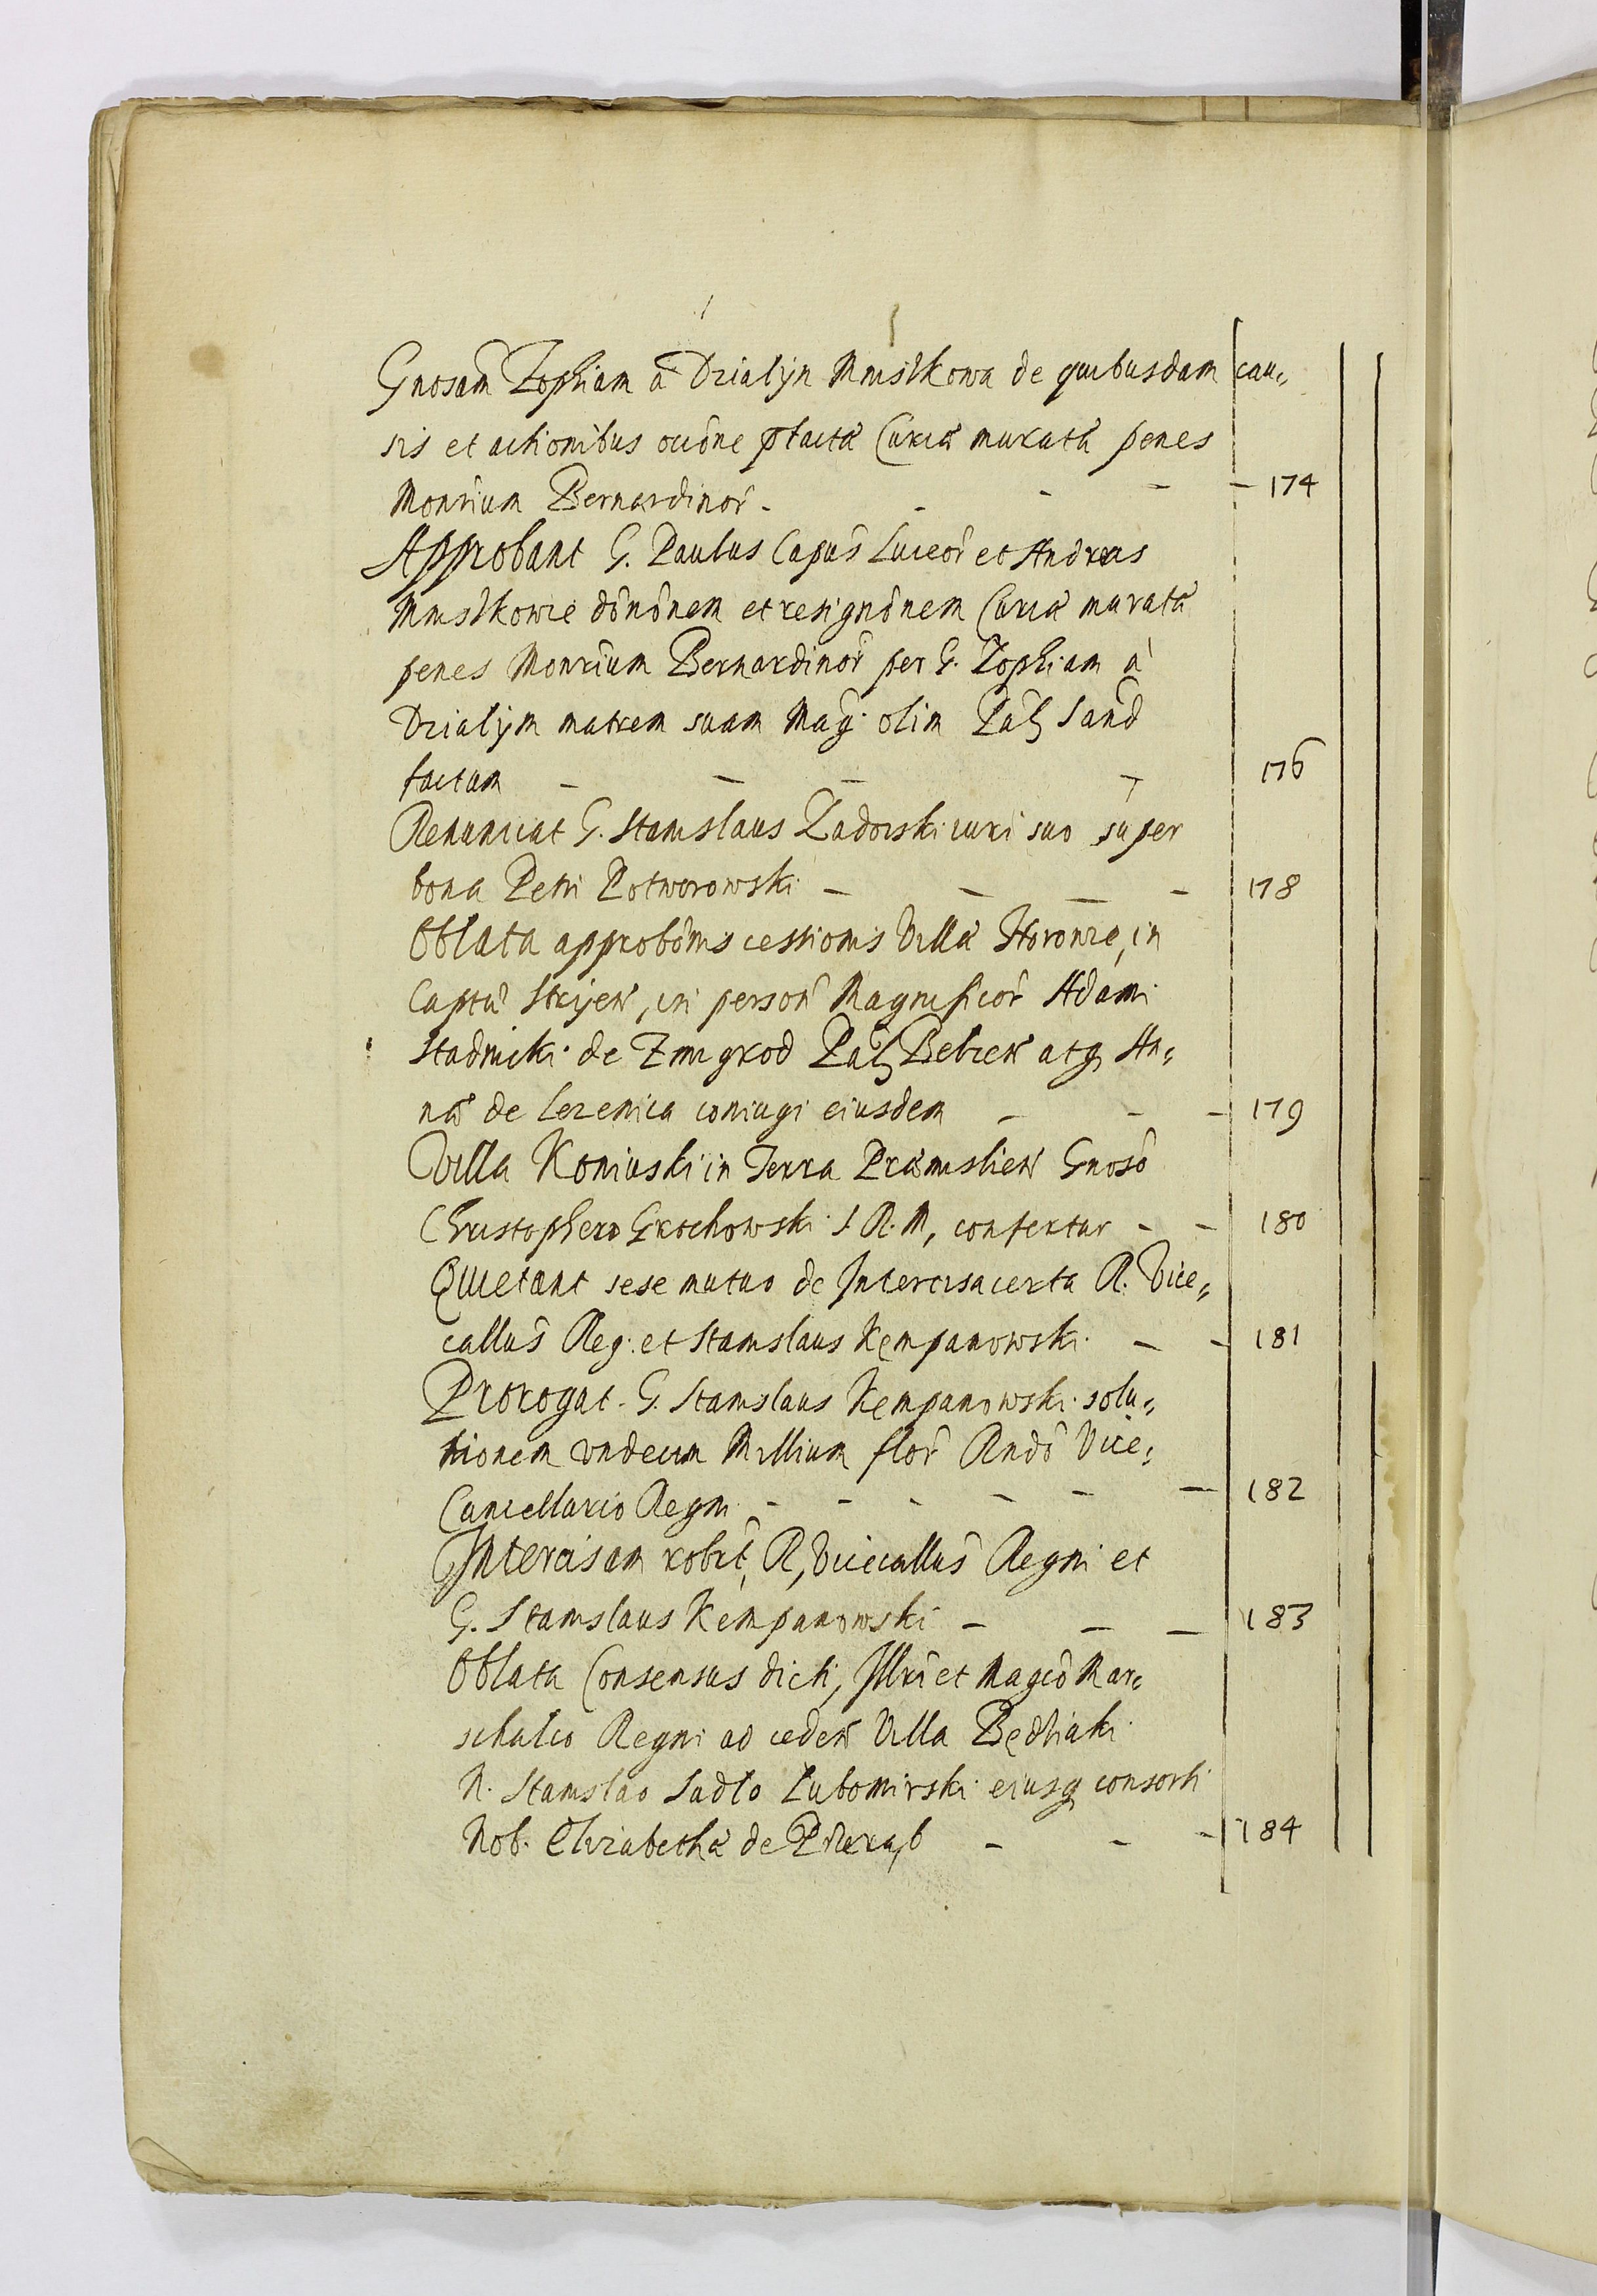 Gnosam Zophiam a Dzialÿn Mniskowa de quibusdam cau„
sis et actionibus occ̃one p̃tactæ Curiæ muratæ penes
Monrium Bernardinor̃ - - - - 174
Approbant G. Paulus Capus̃ Luceor̃ et Andreas
Mnisskowie dõnõnem et resignõnem Curiæ muratæ
penes Monrium Bernardinor̃ per G. Zophiam a
Dzialÿm matrem suam Mag: olim Pal: Sand̃
factam - - - - 176
Renunciat G. Stanislaus Zadorski iuri suo super
bona Petri Potworowski - - - - 178
Oblata approbõnis cessionis Villæ Horonie, in
Captũ Strÿeñ, in personẽ Magnificor̃ Adami
Stadnicki de Zmigrod Pal: Belzeñ atq An„
næ de Lezenica coniugi eiusdem - - - 179
Villa Koniuski in Terra Præmislieñ Gnosõ
Christophero Grochowski S R. M, confertur - - 180
Quietant sese mutuo de Intercisa certa R. Vice„
callus̃ Reg: et Stanislaus Kempanowski - - 181
Prorogat G. Stanislaus Kempanowski solu„
tionem undecim Millium flor̃ Rndõ Vice„
Cancellario Regni - - - - - - 182
Intercisam robt̃, R, Vicecallus̃ Regni et
G. Stanislaus Kempanowski - - - 183
Oblata Consensus dicti, Illri et Magco Mar„
schalco Regni ad cedeñ Villa Będliaki
N. Stanislao Sadlo Lubomirski eiusq consorti
Nob. Elizabethæ de Przerąb - - - 184